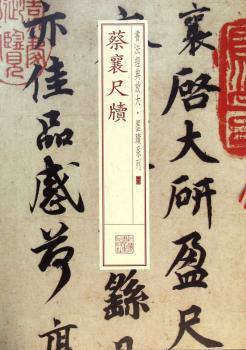 襄啓大研盈尺
書法經典放大·墨蹟系列
蔡襄尺牘
繇
亦佳品感荷